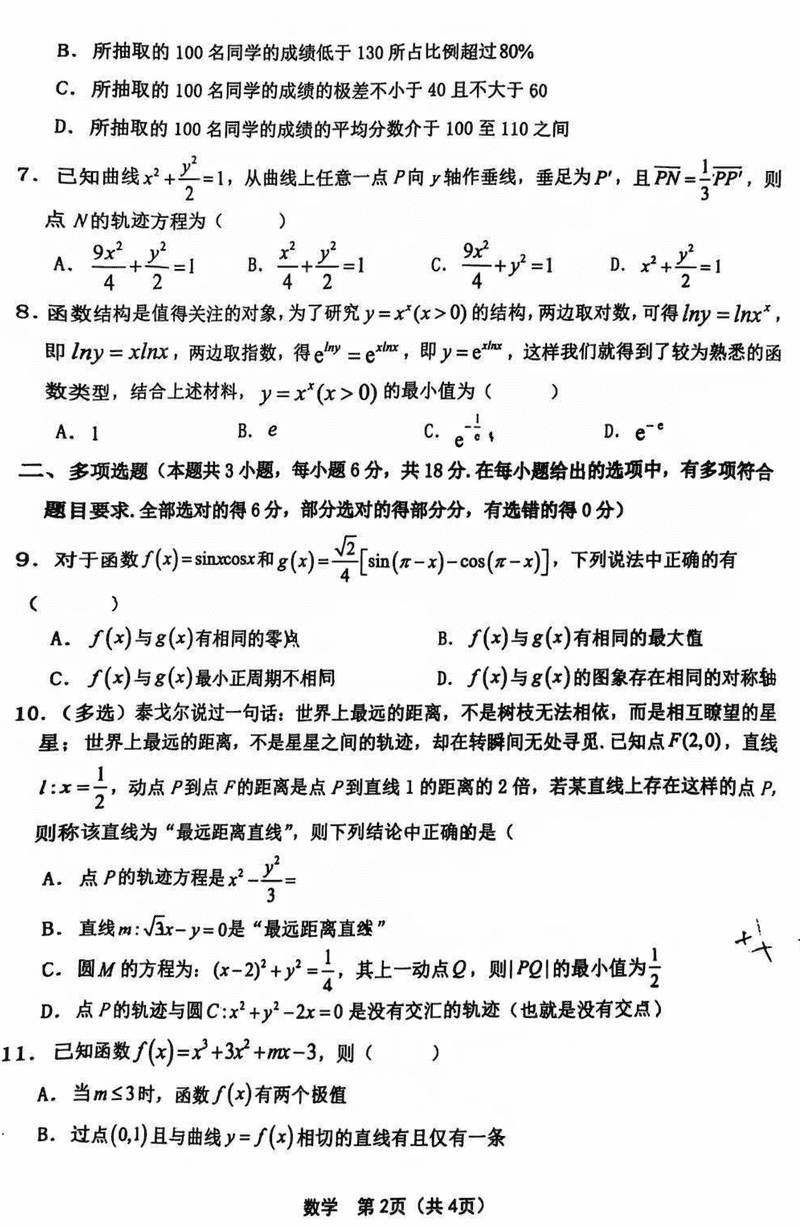 B. 所抽取的 100 名同学的成绩低于 130 所占比例超过80%
C. 所抽取的 100 名同学的成绩的极差不小于 40 且不大于 60
D. 所抽取的 100 名同学的成绩的平均分数介于 100 至 110 之间
7. 已知曲线 $x^2+\frac{y^2}{2}=1$，从曲线上任意一点 P向 y轴作垂线，垂足为P′，且 $\overline{PN}=\frac{1}{3}\overline{PP'}$，则
点 N的轨迹方程为（ ）
A. $\frac{9x^2}{4}+\frac{y^2}{2}=1$ B. $\frac{x^2}{4}+\frac{y^2}{2}=1$ C. $\frac{9x^2}{4}+y^2=1$ D. $x^2+\frac{y^2}{2}=1$
8. 函数结构是值得关注的对象，为了研究 $y=x^x(x>0)$ 的结构，两边取对数，可得 $lny=lnx^x$，
即 $lny=xlnx$，两边取指数，得 $e^{lny}=e^{xlnx}$，即 $y=e^{xlnx}$，这样我们就得到了较为熟悉的函
数类型，结合上述材料，$y=x^x(x>0)$ 的最小值为（ ）
A. 1 B. e C. $e^{-\frac{1}{e}}$ D. $e^{-e}$
二、多项选题（本题共 3 小题，每小题 6 分，共 18 分. 在每小题给出的选项中，有多项符合
题目要求. 全部选对的得 6 分，部分选对的得部分分，有选错的得 0 分）
9. 对于函数 $f(x)=sinxcosx$和 $g(x)=\frac{\sqrt{2}}{4}[sin(\pi-x)-cos(\pi-x)]$，下列说法中正确的有
（ ）
A. f(x)与g(x)有相同的零点 B. f(x)与g(x)有相同的最大值
C. f(x)与g(x)最小正周期不相同 D. f(x)与g(x)的图象存在相同的对称轴
10.（多选）泰戈尔说过一句话：世界上最远的距离，不是树枝无法相依，而是相互瞭望的星
星；世界上最远的距离，不是星星之间的轨迹，却在转瞬间无处寻觅. 已知点F(2,0)，直线
$l:x=\frac{1}{2}$，动点 P到点 F的距离是点 P到直线 l 的距离的 2 倍，若某直线上存在这样的点 P,
则称该直线为“最远距离直线”，则下列结论中正确的是（
A. 点 P的轨迹方程是 $x^2-\frac{y^2}{3}=$
B. 直线 $m:\sqrt{3}x-y=0$是“最远距离直线”
C. 圆M 的方程为：$(x-2)^2+y^2=\frac{1}{4}$，其上一动点Q，则|PQ|的最小值为$\frac{1}{2}$
D. 点 P的轨迹与圆$C:x^2+y^2-2x=0$ 是没有交汇的轨迹（也就是没有交点）
11. 已知函数 $f(x)=x^3+3x^2+mx-3$，则（ ）
A. 当m≤3时，函数f(x)有两个极值
B. 过点(0,1)且与曲线y=f(x)相切的直线有且仅有一条
数学 第2页（共4页）